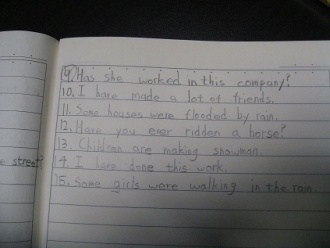 9. Has she worked in this company?
10. I have made a lot of friends.
11. Some houses were flooded by rain.
12. Have you ever ridden a horse?
13. Children are making snowman.
street?
14. I have done this work.
15. Some girls were walking in the rain.